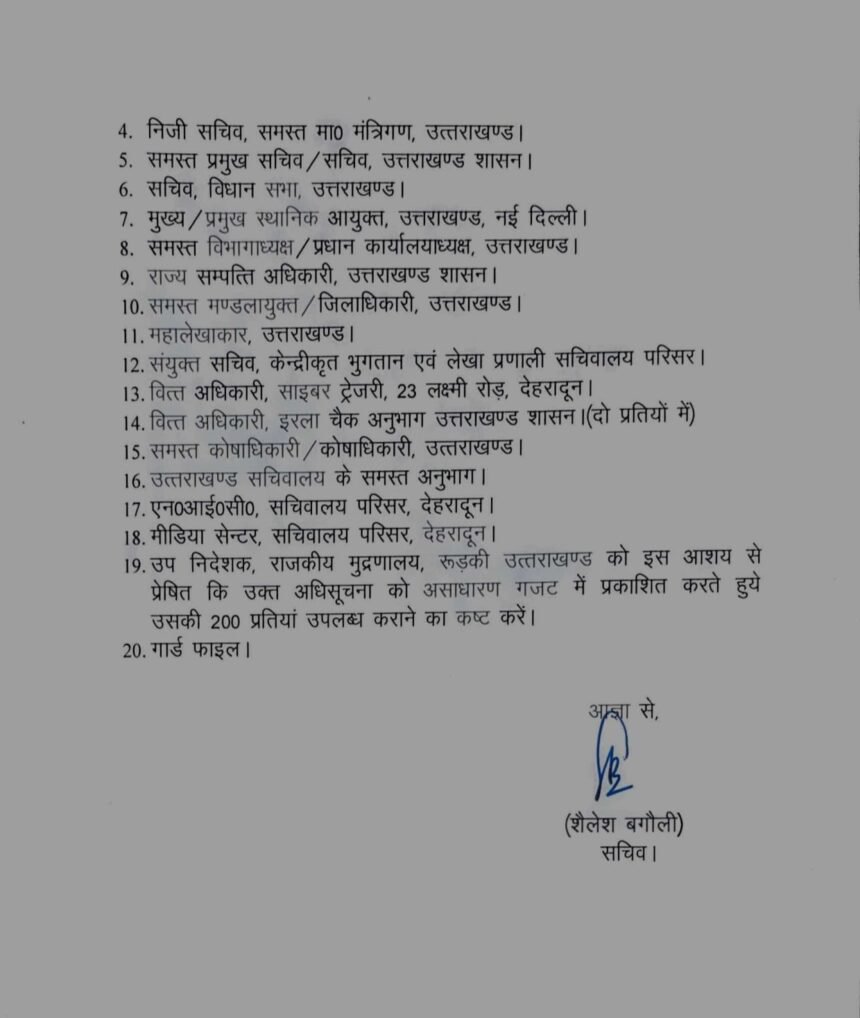 4. निजी सचिव, समस्त मा0 मंत्रिगण, उत्तराखण्ड।
5. समस्त प्रमुख सचिव/सचिव, उत्तराखण्ड शासन।
6. सचिव, विधान सभा, उत्तराखण्ड।
7. मुख्य/प्रमुख स्थानिक आयुक्त, उत्तराखण्ड, नई दिल्ली।
8. समस्त विभागाध्यक्ष/प्रधान कार्यालयाध्यक्ष, उत्तराखण्ड।
9. राज्य सम्पत्ति अधिकारी, उत्तराखण्ड शासन।
10. समस्त मण्डलायुक्त/जिलाधिकारी, उत्तराखण्ड।
11. महालेखाकार, उत्तराखण्ड।
12. संयुक्त सचिव, केन्द्रीकृत भुगतान एवं लेखा प्रणाली सचिवालय परिसर।
13. वित्त अधिकारी, साइबर ट्रेजरी, 23 लक्ष्मी रोड़, देहरादून।
14. वित्त अधिकारी, इरला चैक अनुभाग उत्तराखण्ड शासन।(दो प्रतियों में)
15. समस्त कोषाधिकारी/कोषाधिकारी, उत्तराखण्ड।
16. उत्तराखण्ड सचिवालय के समस्त अनुभाग।
17. एन0आई0सी0, सचिवालय परिसर, देहरादून।
18. मीडिया सेन्टर, सचिवालय परिसर, देहरादून।
19. उप निदेशक, राजकीय मुद्रणालय, रूड़की उत्तराखण्ड को इस आशय से
प्रेषित कि उक्त अधिसूचना को असाधारण गजट में प्रकाशित करते हुये
उसकी 200 प्रतियां उपलब्ध कराने का कष्ट करें।
20. गार्ड फाइल।
आज्ञा से,
(शैलेश बगौली)
सचिव।